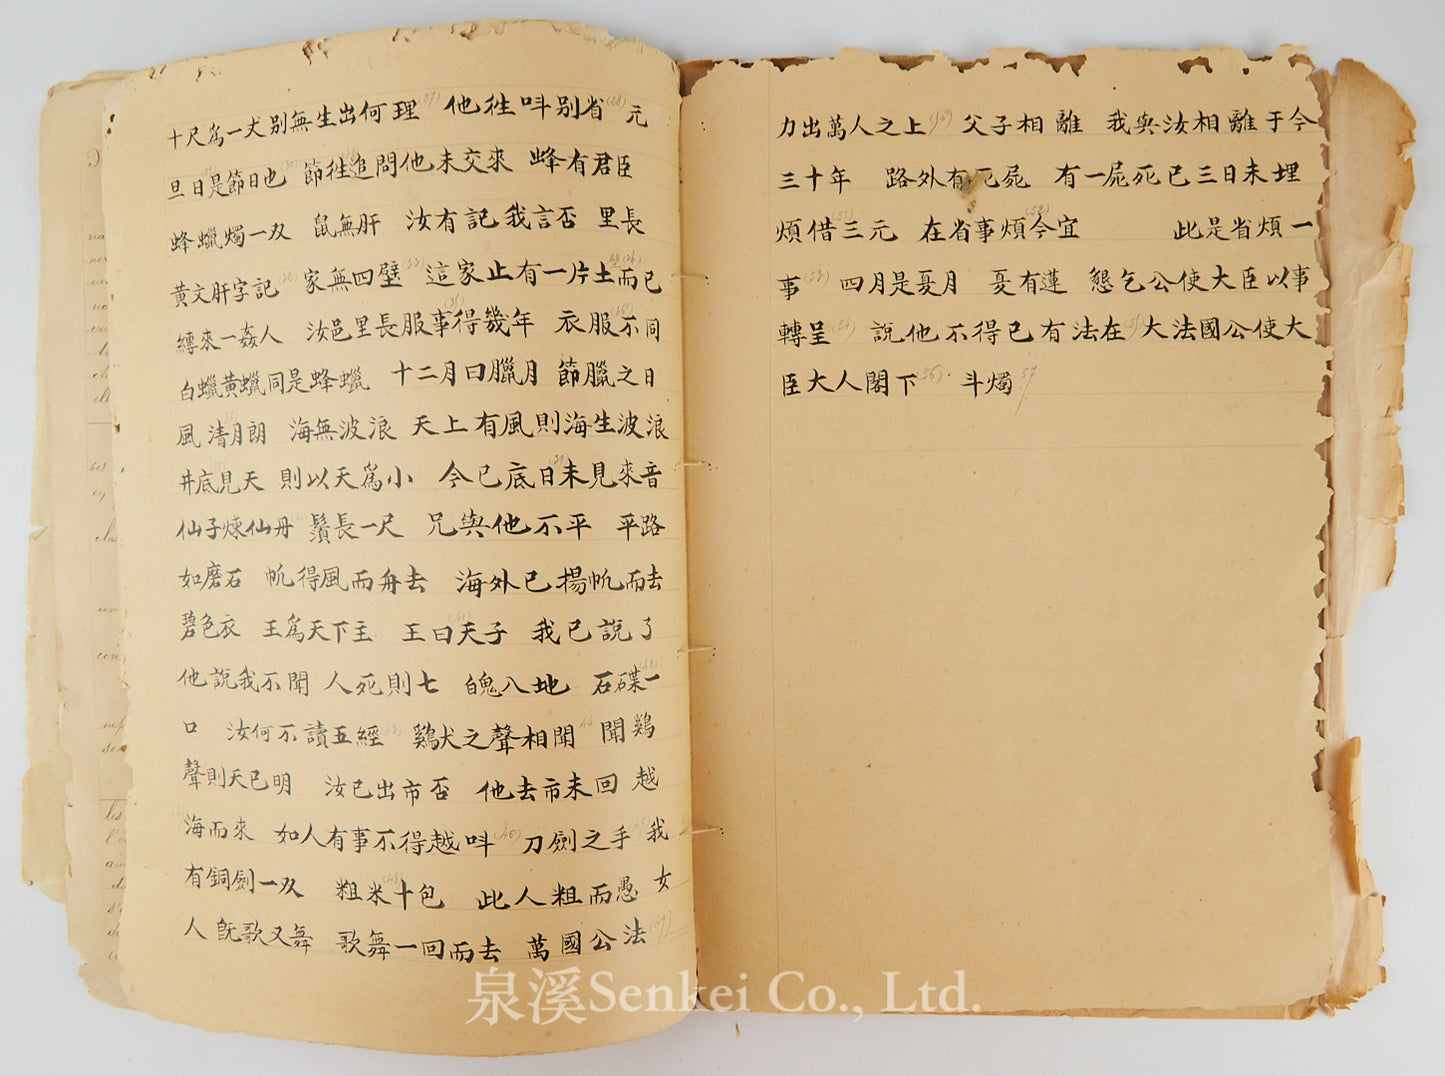 十尺為一丈別無生出何理 他徃呌别省 元
旦日是節日也 節徃追問他未交來 蜂有君臣
蜂蠟燭一双 鼠無肝 汝有記我言否 里長
黃文肝字記 家無四壁 這家止有一片土而已
縛來一姦人 汝邑里長服事得幾年 衣服不同
白蠟黃蠟同是蜂蠟 十二月曰臘月 節臘之日
風清月朗 海無波浪 天上有風則海生波浪
井底見天 則以天為小 今已底日未見來音
仙子煉仙丹 鬚長一尺 兄與他不平 平路
如磨石 帆得風而舟去 海外已揚帆而去
碧色衣 王為天下主 王曰天子 我已說了
他說我不聞 人死則七 魄八地 石碟一
口 汝何不讀五經 鷄犬之聲相聞 聞鷄
聲則天已明 汝已出市否 他去市未回 越
海而來 如人有事不得越呌 刀劍之手 我
有銅劍一双 粗米十包 此人粗而愚 女
人既歌又舞 歌舞一回而去 萬國公法
力出萬人之上 父子相離 我與汝相離于今
三十年 路外有死屍 有一屍死已三日未埋
煩借三元 在省事煩今宜 此是省煩一
事 四月是憂月 憂有蓮 懇乞公使大臣以事
轉呈 說他不得已有法在 大法國公使大
臣大人閣下 斗燭
泉溪Senkei Co., Ltd.